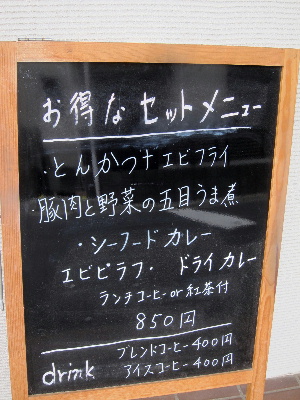 お得なセットメニュー
・とんかつ+エビフライ
・豚肉と野菜の五目うま煮
・シーフードカレー
エビピラフ・ドライカレー
ランチコーヒーor紅茶付
850円
ブレンドコーヒー400円
drink アイスコーヒー400円